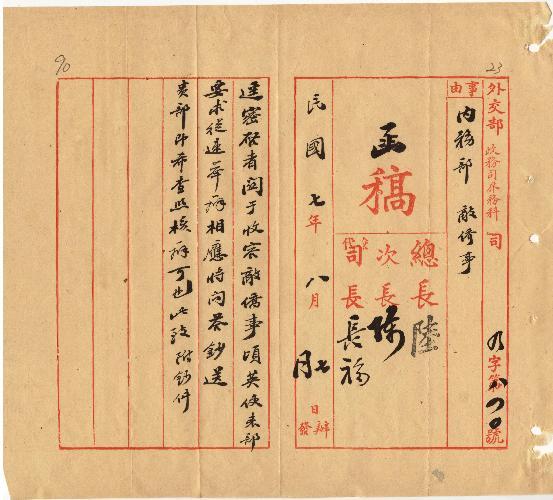 23
外交部 政務司外務科 司 字第 號
事由
內務部 敵僑事
函稿
總長 陸
次長 陳
司長 長福
民國七年八月七日 辦發
90
逕密啓者關于收容敵僑事頃英使來部
要求從速舉辦相應將問答鈔送
貴部即希查照核辦可也此致附鈔件